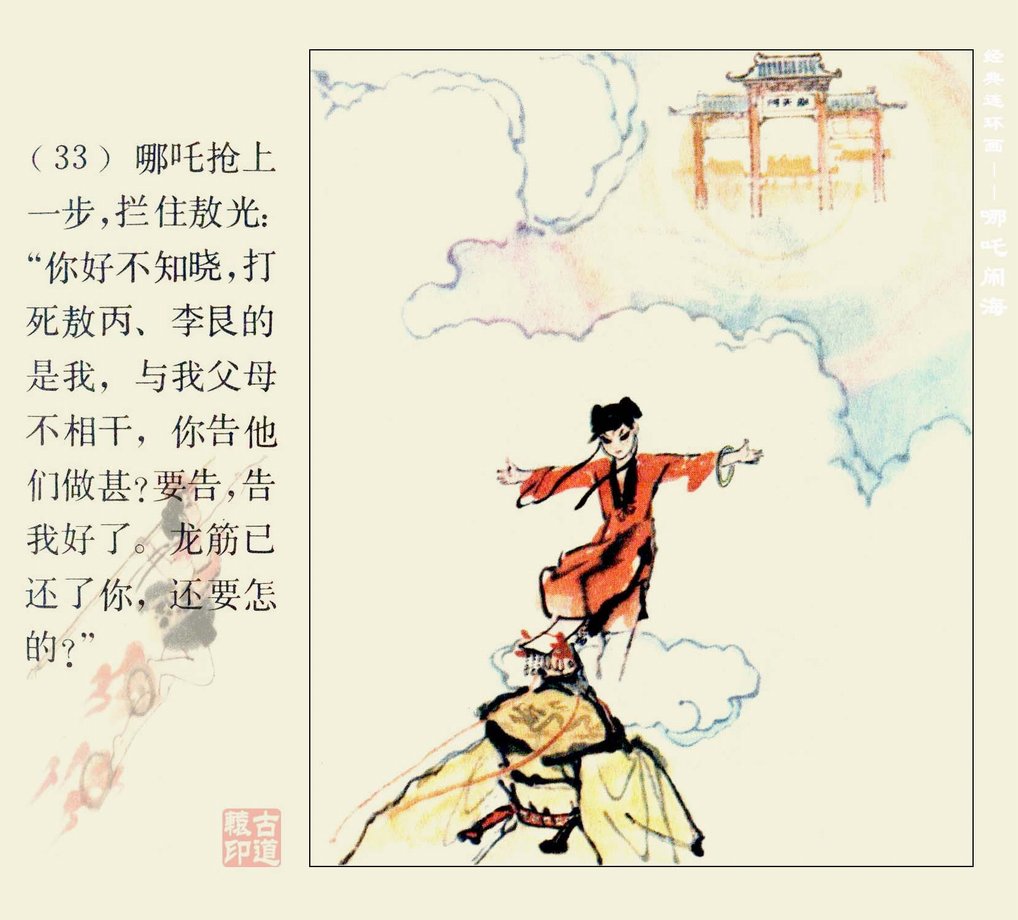 （33）哪吒抢上
一步，拦住敖光：
“你好不知晓，打
死敖丙、李艮的
是我，与我父母
不相干，你告他
们做甚？要告，告
我好了。龙筋已
还了你，还要怎
的？”
经典连环画——哪吒闹海
古道
辕印